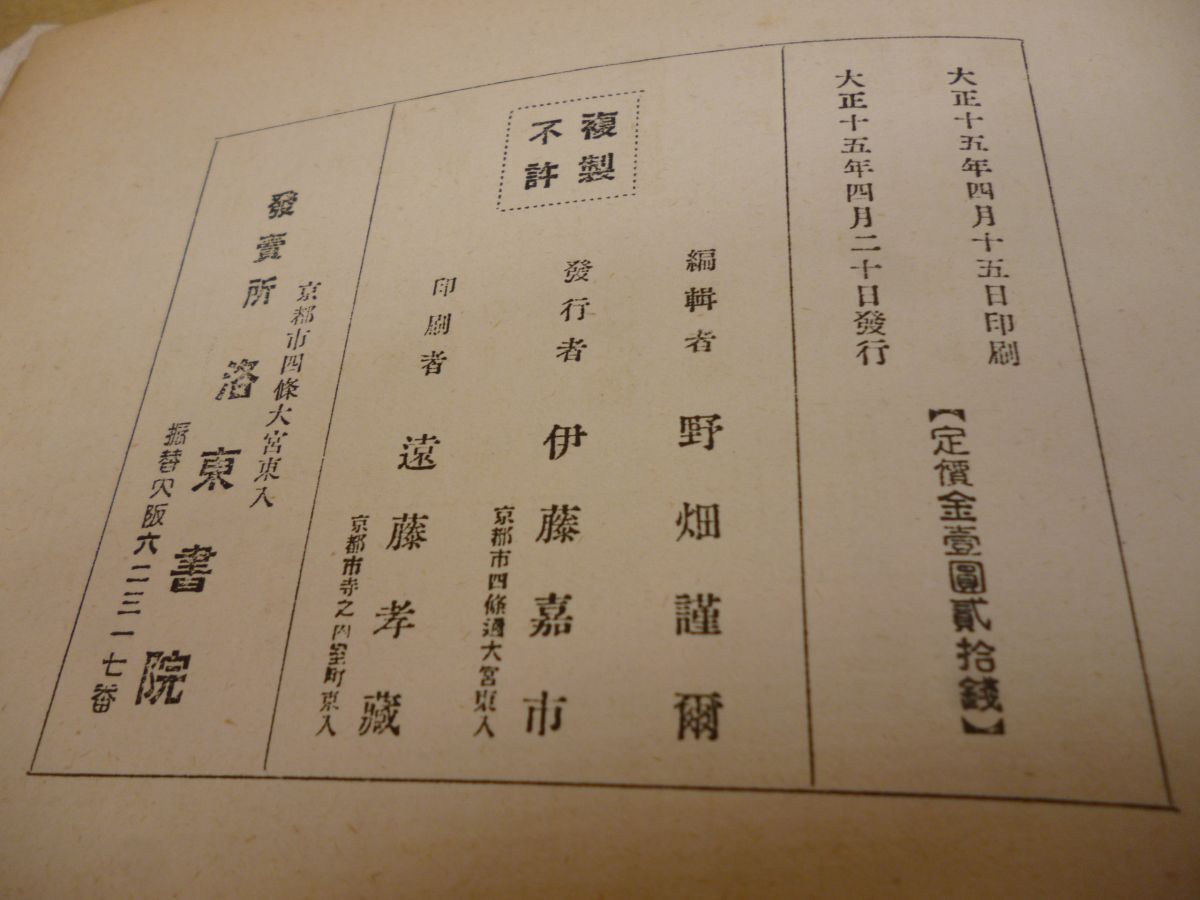 大正十五年四月十五日印刷
大正十五年四月二十日發行
【定價金壹圓貳拾錢】
複製
不許
編輯者 野畑謹爾
發行者 伊藤嘉市
京都市四條通大宮東入
印刷者 遠藤孝藏
京都市寺之内室町東入
京都市四條大宮東入
發賣所 洛東書院
振替大阪六二三一七番